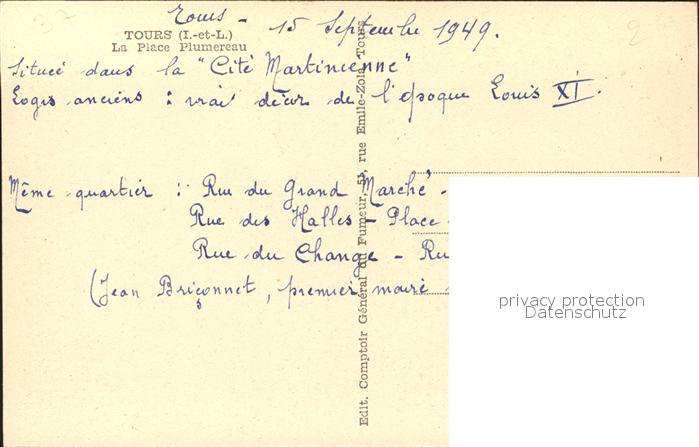 37
Tours - 15 Septembre 1949.
2
TOURS (I.-et-L.)
La Place Plumereau
Située dans la "Cité Martinienne"
Logis anciens : vrai décor de l'époque Louis XI.
Même quartier : Rue du Grand Marché -
Rue des Halles - Place
Rue du Change - Ru
(Jean Briçonnet, premier maire
Edit. Comptoir Général du Fumeur, 55, rue Emile-Zola, Tours
privacy protection
Datenschutz